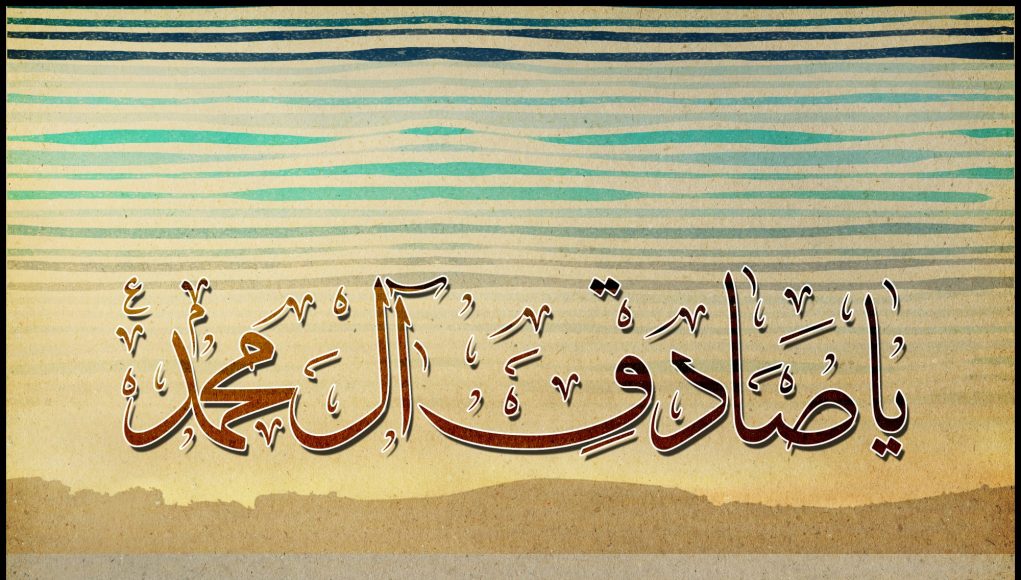 يا صَادِقَ آلَ محمد ع